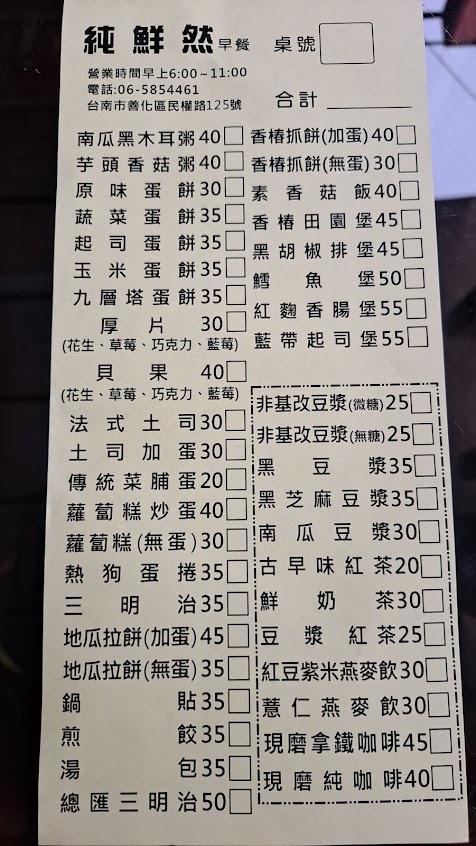 純鮮然早餐 桌號
營業時間早上6:00~11:00
電話:06-5854461
台南市善化區民權路125號
合計
南瓜黑木耳粥40
芋頭香菇粥40
原味蛋餅30
蔬菜蛋餅35
起司蛋餅35
玉米蛋餅35
九層塔蛋餅35
厚片30
(花生、草莓、巧克力、藍莓)
貝果40
(花生、草莓、巧克力、藍莓)
法式土司30
土司加蛋30
傳統菜脯蛋20
蘿蔔糕炒蛋40
蘿蔔糕(無蛋)30
熱狗蛋捲35
三明治35
地瓜拉餅(加蛋)45
地瓜拉餅(無蛋)35
鍋貼35
煎餃35
湯包35
總匯三明治50
香椿抓餅(加蛋)40
香椿抓餅(無蛋)30
素香菇飯40
香椿田園堡45
黑胡椒排堡45
鱈魚堡50
紅麴香腸堡55
藍帶起司堡55
非基改豆漿(微糖)25
非基改豆漿(無糖)25
黑豆漿35
黑芝麻豆漿35
南瓜豆漿30
古早味紅茶20
鮮奶茶30
豆漿紅茶25
紅豆紫米燕麥飲30
薏仁燕麥飲30
現磨拿鐵咖啡45
現磨純咖啡40